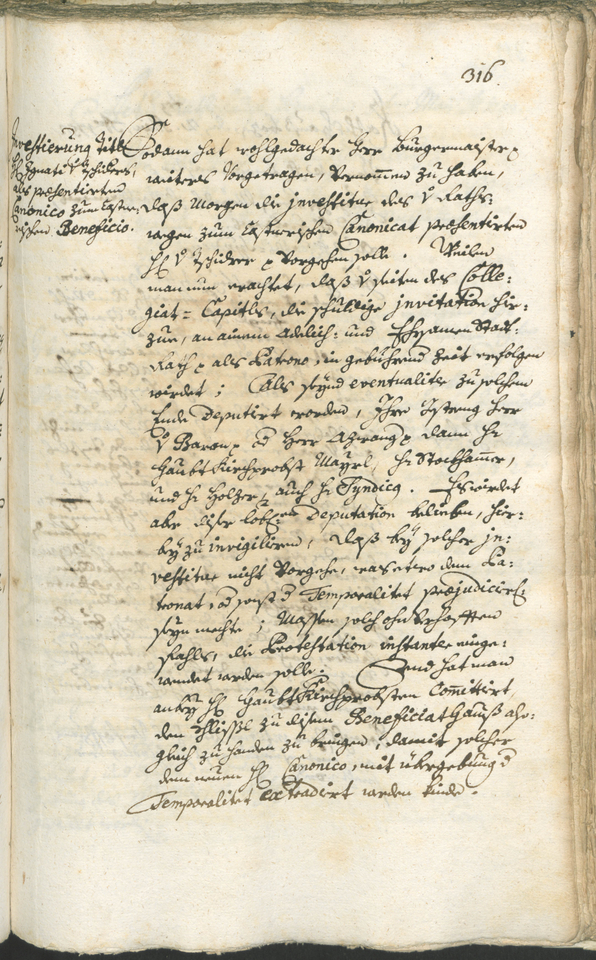 316.
Investierung Titl
H: Ignati v Tschiderer,
als præsentirtem
Canonico zum Castne-
rischen Beneficio.
Sodann hat wohlgedachter Herr Burgermaister
weiters vorgetragen, vernommen zu haben,
daß morgen die investitur des v Raths
wegen zum Castnerischen Canonicat præsentirten
H: v Tschiderer vorgehen solle. Weilen
man nun erachtet, daß v seiten des Colle-
giat-Capitls, die schuldige invitation hier-
zue, an ainem Adelich- und Ehrsamen Statt-
Rath als Patrono, in gebührend zeit erfolgen
wirdet; Als seynd eventualiter zu solchem
Ende Deputirt worden, Ihro Gstreng Herr
v Baron, Herr dann H:
Haubt Kirchprobst Mayrl, H: Stockhamer,
und H: Holzer, auch H: Syndicg. Es wirdet
aber dise lobl: Deputation belieben, hier-
bey zu invigiliren, daß bey solcher in-
vestitur nicht vorgehe, was etwo dem Pa-
tronat, sonst Temporalitet præjudicirl:
seyn mechte; Massen solch ohnverhofften
fahls, die Protestation instanter einge-
wendet werden solle. Und hat man
anbey H: Haubt Kirchprobsten Committirt
den Schlissl zu disem Beneficiat Hauß also-
gleich zu handen zu bringen, damit solcher
dem neuen H: Canonico, mit übergebung d
Temporalitet extradirt werden kinde.